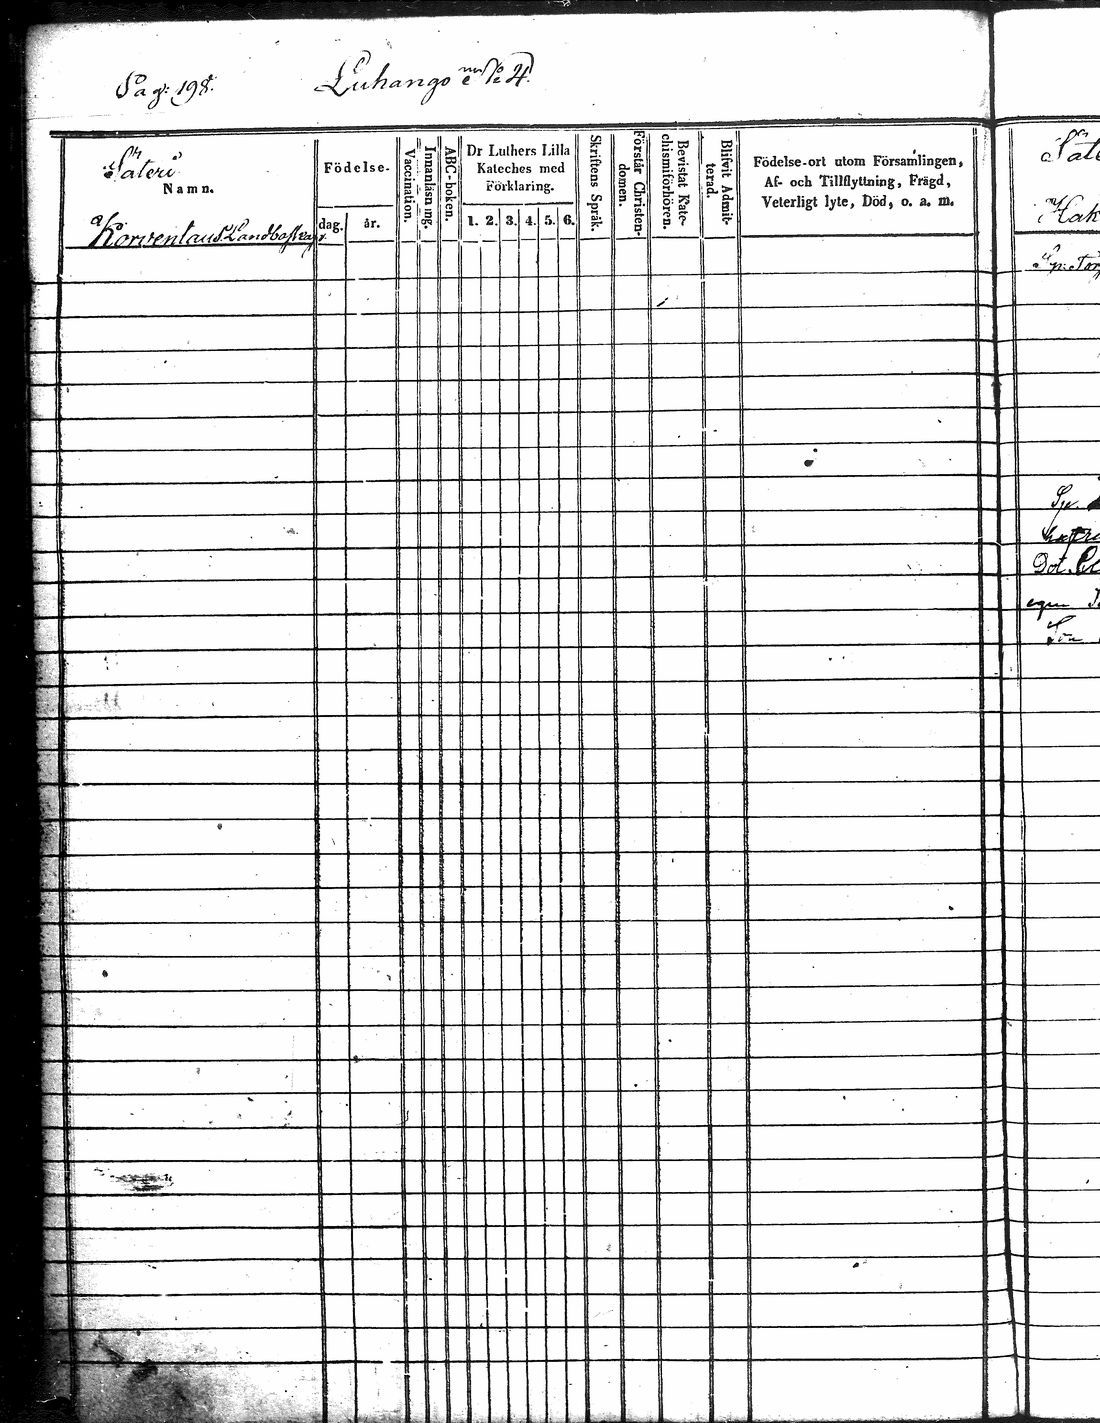 Pag: 198.
Luhango № 4.
Säteri
Namn.
Korvenlaus Landb
Födelse-
dag.
år.
Vaccination.
Innanläsning.
ABC-boken.
Dr Luthers Lilla
Kateches med
Förklaring.
1. 2. 3. 4. 5. 6.
Skriftens Språk.
Förstår Christen-
domen.
Bevistat Kate-
chismiförhören.
Blifvit Admit-
terad.
Födelse-ort utom Församlingen,
Af- och Tillflyttning, Frägd,
Veterligt lyte, Död, o. a. m.
Säte
Hak
Sp. Tor
Sp.
Dot.
egen
Son